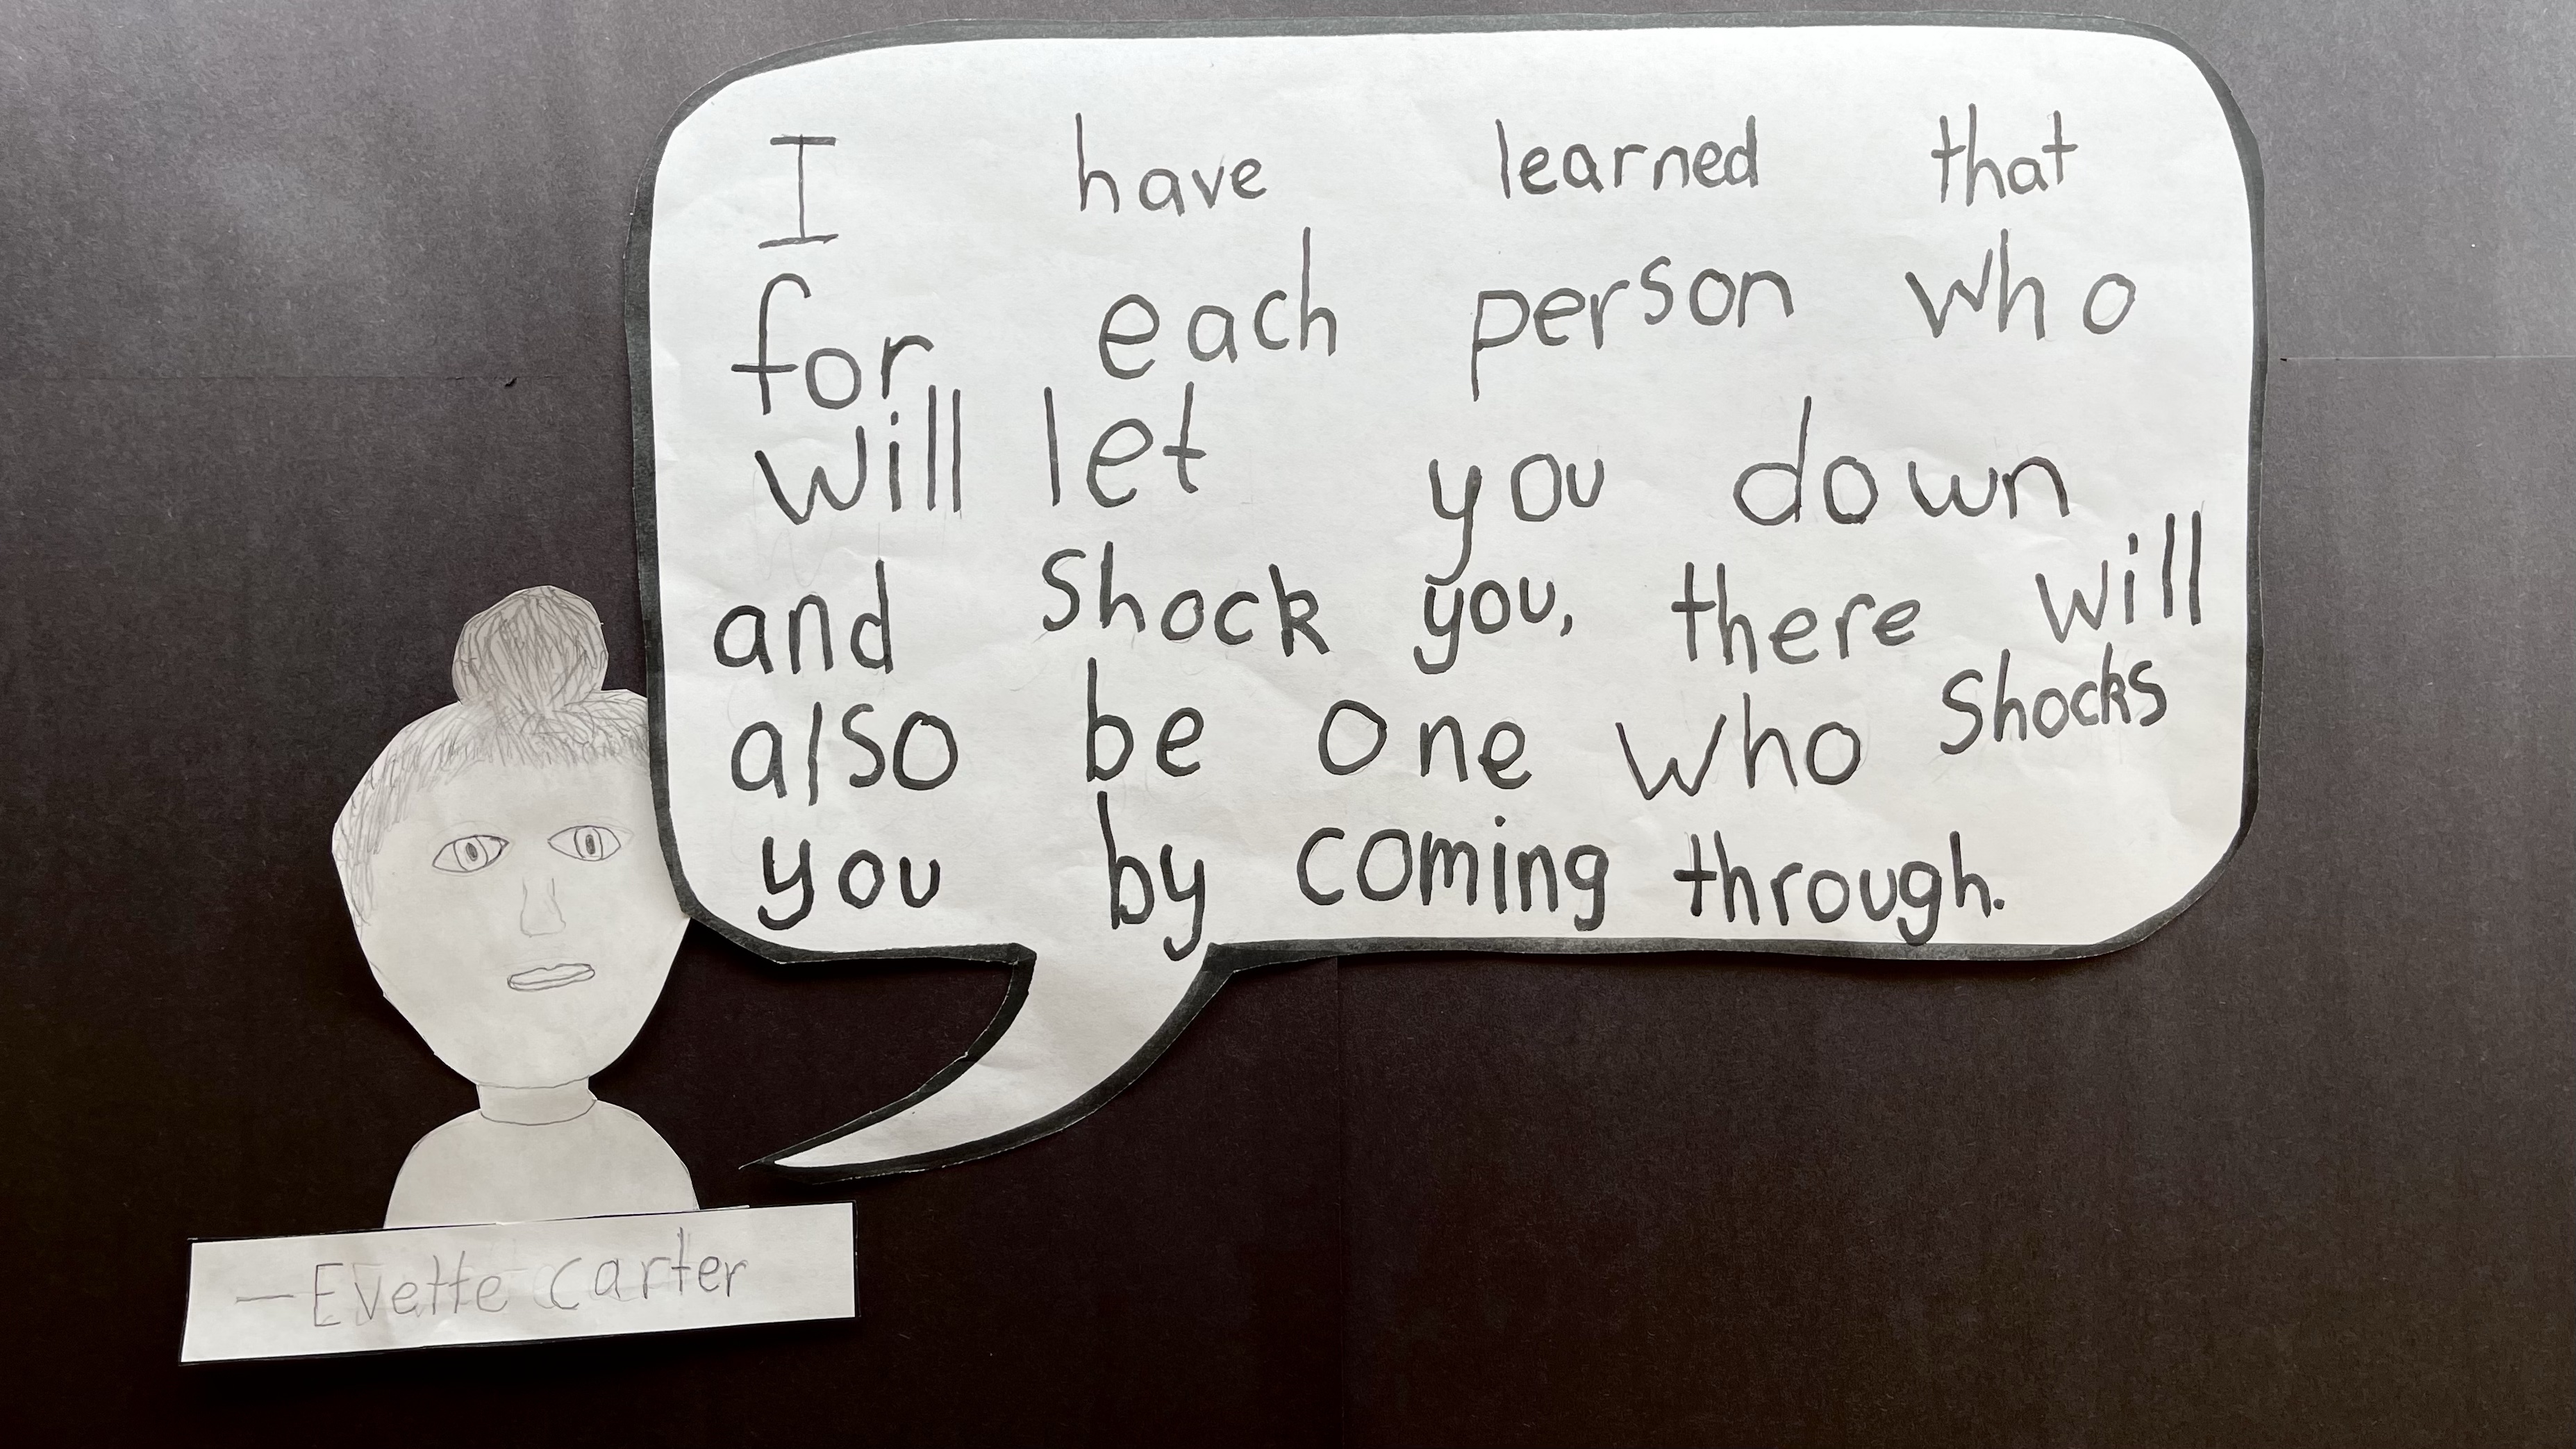 I have learned that
for each person who
will let you down
and Shock you, there will
also be one who Shocks
you by coming through.
— Evette Carter